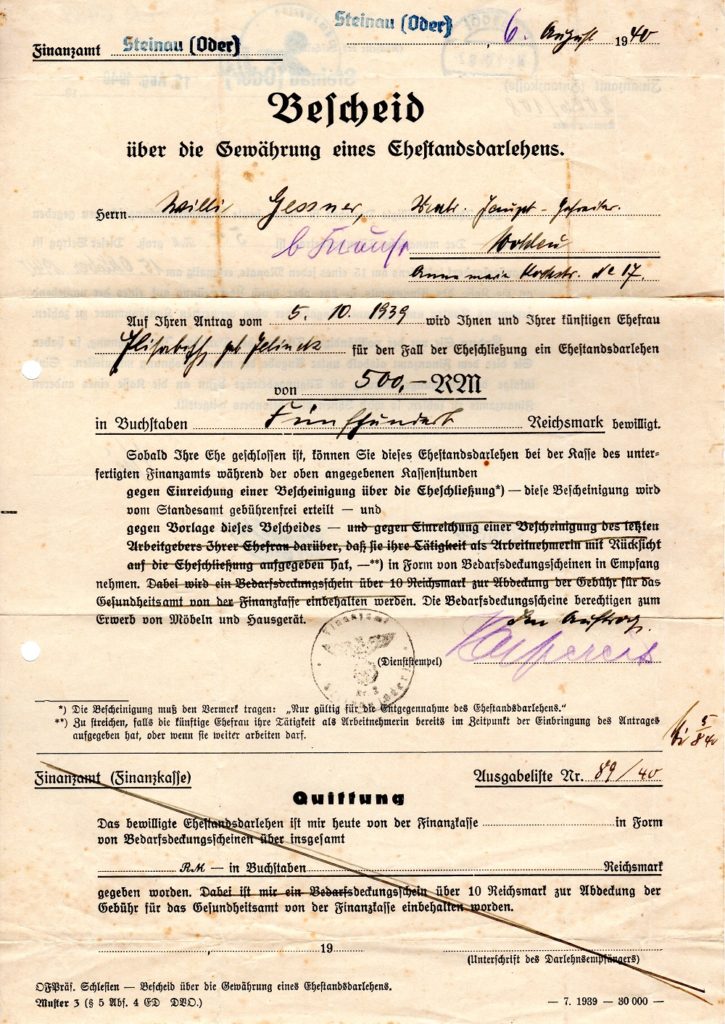 Steinau (Oder), 6. August 1940
Finanzamt Steinau (Oder)
Bescheid
über die Gewährung eines Ehestandsdarlehens.
Herrn Willi Gessner,
Wohlau
Nr. 17.
Auf Ihren Antrag vom 5. 10. 1939 wird Ihnen und Ihrer künftigen Ehefrau
Elisabeth geb Jelinek für den Fall der Eheschließung ein Ehestandsdarlehen
von 500,- RM
in Buchstaben Fünfhundert Reichsmark bewilligt.
Sobald Ihre Ehe geschlossen ist, können Sie dieses Ehestandsdarlehen bei der Kasse des unter-
fertigten Finanzamts während der oben angegebenen Kassenstunden
gegen Einreichung einer Bescheinigung über die Eheschließung*) — diese Bescheinigung wird
vom Standesamt gebührenfrei erteilt — und
gegen Vorlage dieses Bescheides — und gegen Einreichung einer Bescheinigung des letzten
Arbeitgebers Ihrer Ehefrau darüber, daß sie ihre Tätigkeit als Arbeitnehmerin mit Rücksicht
auf die Eheschließung aufgegeben hat, —**) in Form von Bedarfsdeckungsscheinen in Empfang
nehmen. Dabei wird ein Bedarfsdeckungsschein über 10 Reichsmark zur Abdeckung der Gebühr für das
Gesundheitsamt von der Finanzkasse einbehalten werden. Die Bedarfsdeckungsscheine berechtigen zum
Erwerb von Möbeln und Hausgerät.
Im Auftrag.
(Dienststempel)
*) Die Bescheinigung muß den Vermerk tragen: „Nur gültig für die Entgegennahme des Ehestandsdarlehens.“
**) Zu streichen, falls die künftige Ehefrau ihre Tätigkeit als Arbeitnehmerin bereits im Zeitpunkt der Einbringung des Antrages
aufgegeben hat, oder wenn sie weiter arbeiten darf.
Finanzamt (Finanzkasse)
Ausgabeliste Nr. 89/40
Quittung
Das bewilligte Ehestandsdarlehen ist mir heute von der Finanzkasse in Form
von Bedarfsdeckungsscheinen über insgesamt
RM — in Buchstaben Reichsmark
gegeben worden. Dabei ist mir ein Bedarfsdeckungsschein über 10 Reichsmark zur Abdeckung der
Gebühr für das Gesundheitsamt von der Finanzkasse einbehalten worden.
19
(Unterschrift des Darlehnsempfängers)
OFPräs. Schlesien — Bescheid über die Gewährung eines Ehestandsdarlehens.
Muster 3 (§ 5 Abs. 4 ED DVO.)
— 7. 1939 — 30 000 —